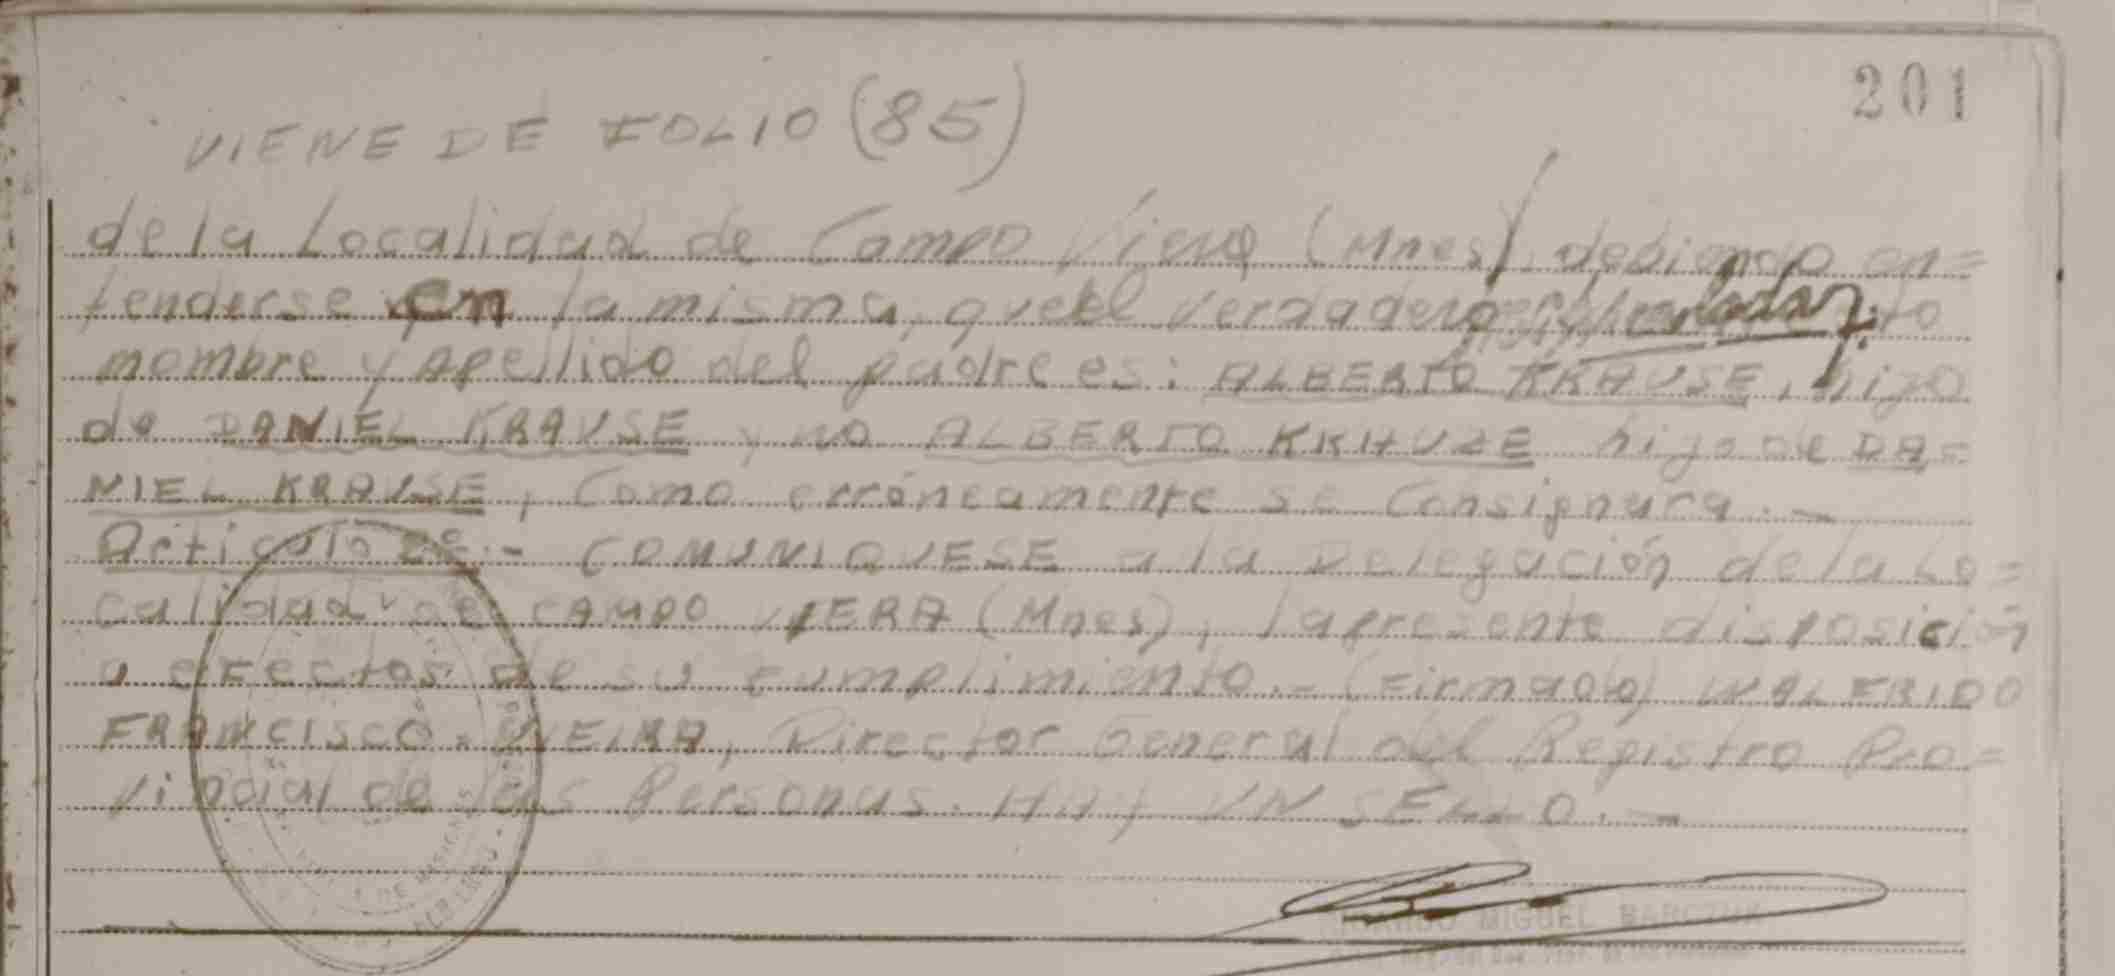 201
VIENE DE FOLIO (85)
de la Localidad de Campo Viera (Mnes), debiendo en=
tenderse en la misma, que el verdadero
nombre y Apellido del padre es: ALBERTO KRAUSE, hijo
de DANIEL KRAUSE y no ALBERTO KRAUZE hijo de DA=
NIEL KRAUSE, como erróneamente se Consignara.-
Artículo 2º.- COMUNIQUESE a la Delegación de la Lo=
calidad de CAMPO VIERA (Mnes), la presente disposición
a efectos de su cumplimiento.- (Firmado) WALFRIDO
FRANCISCO Director General del Registro Pro=
vincial de las Personas. HAY UN SELLO.-
MIGUEL